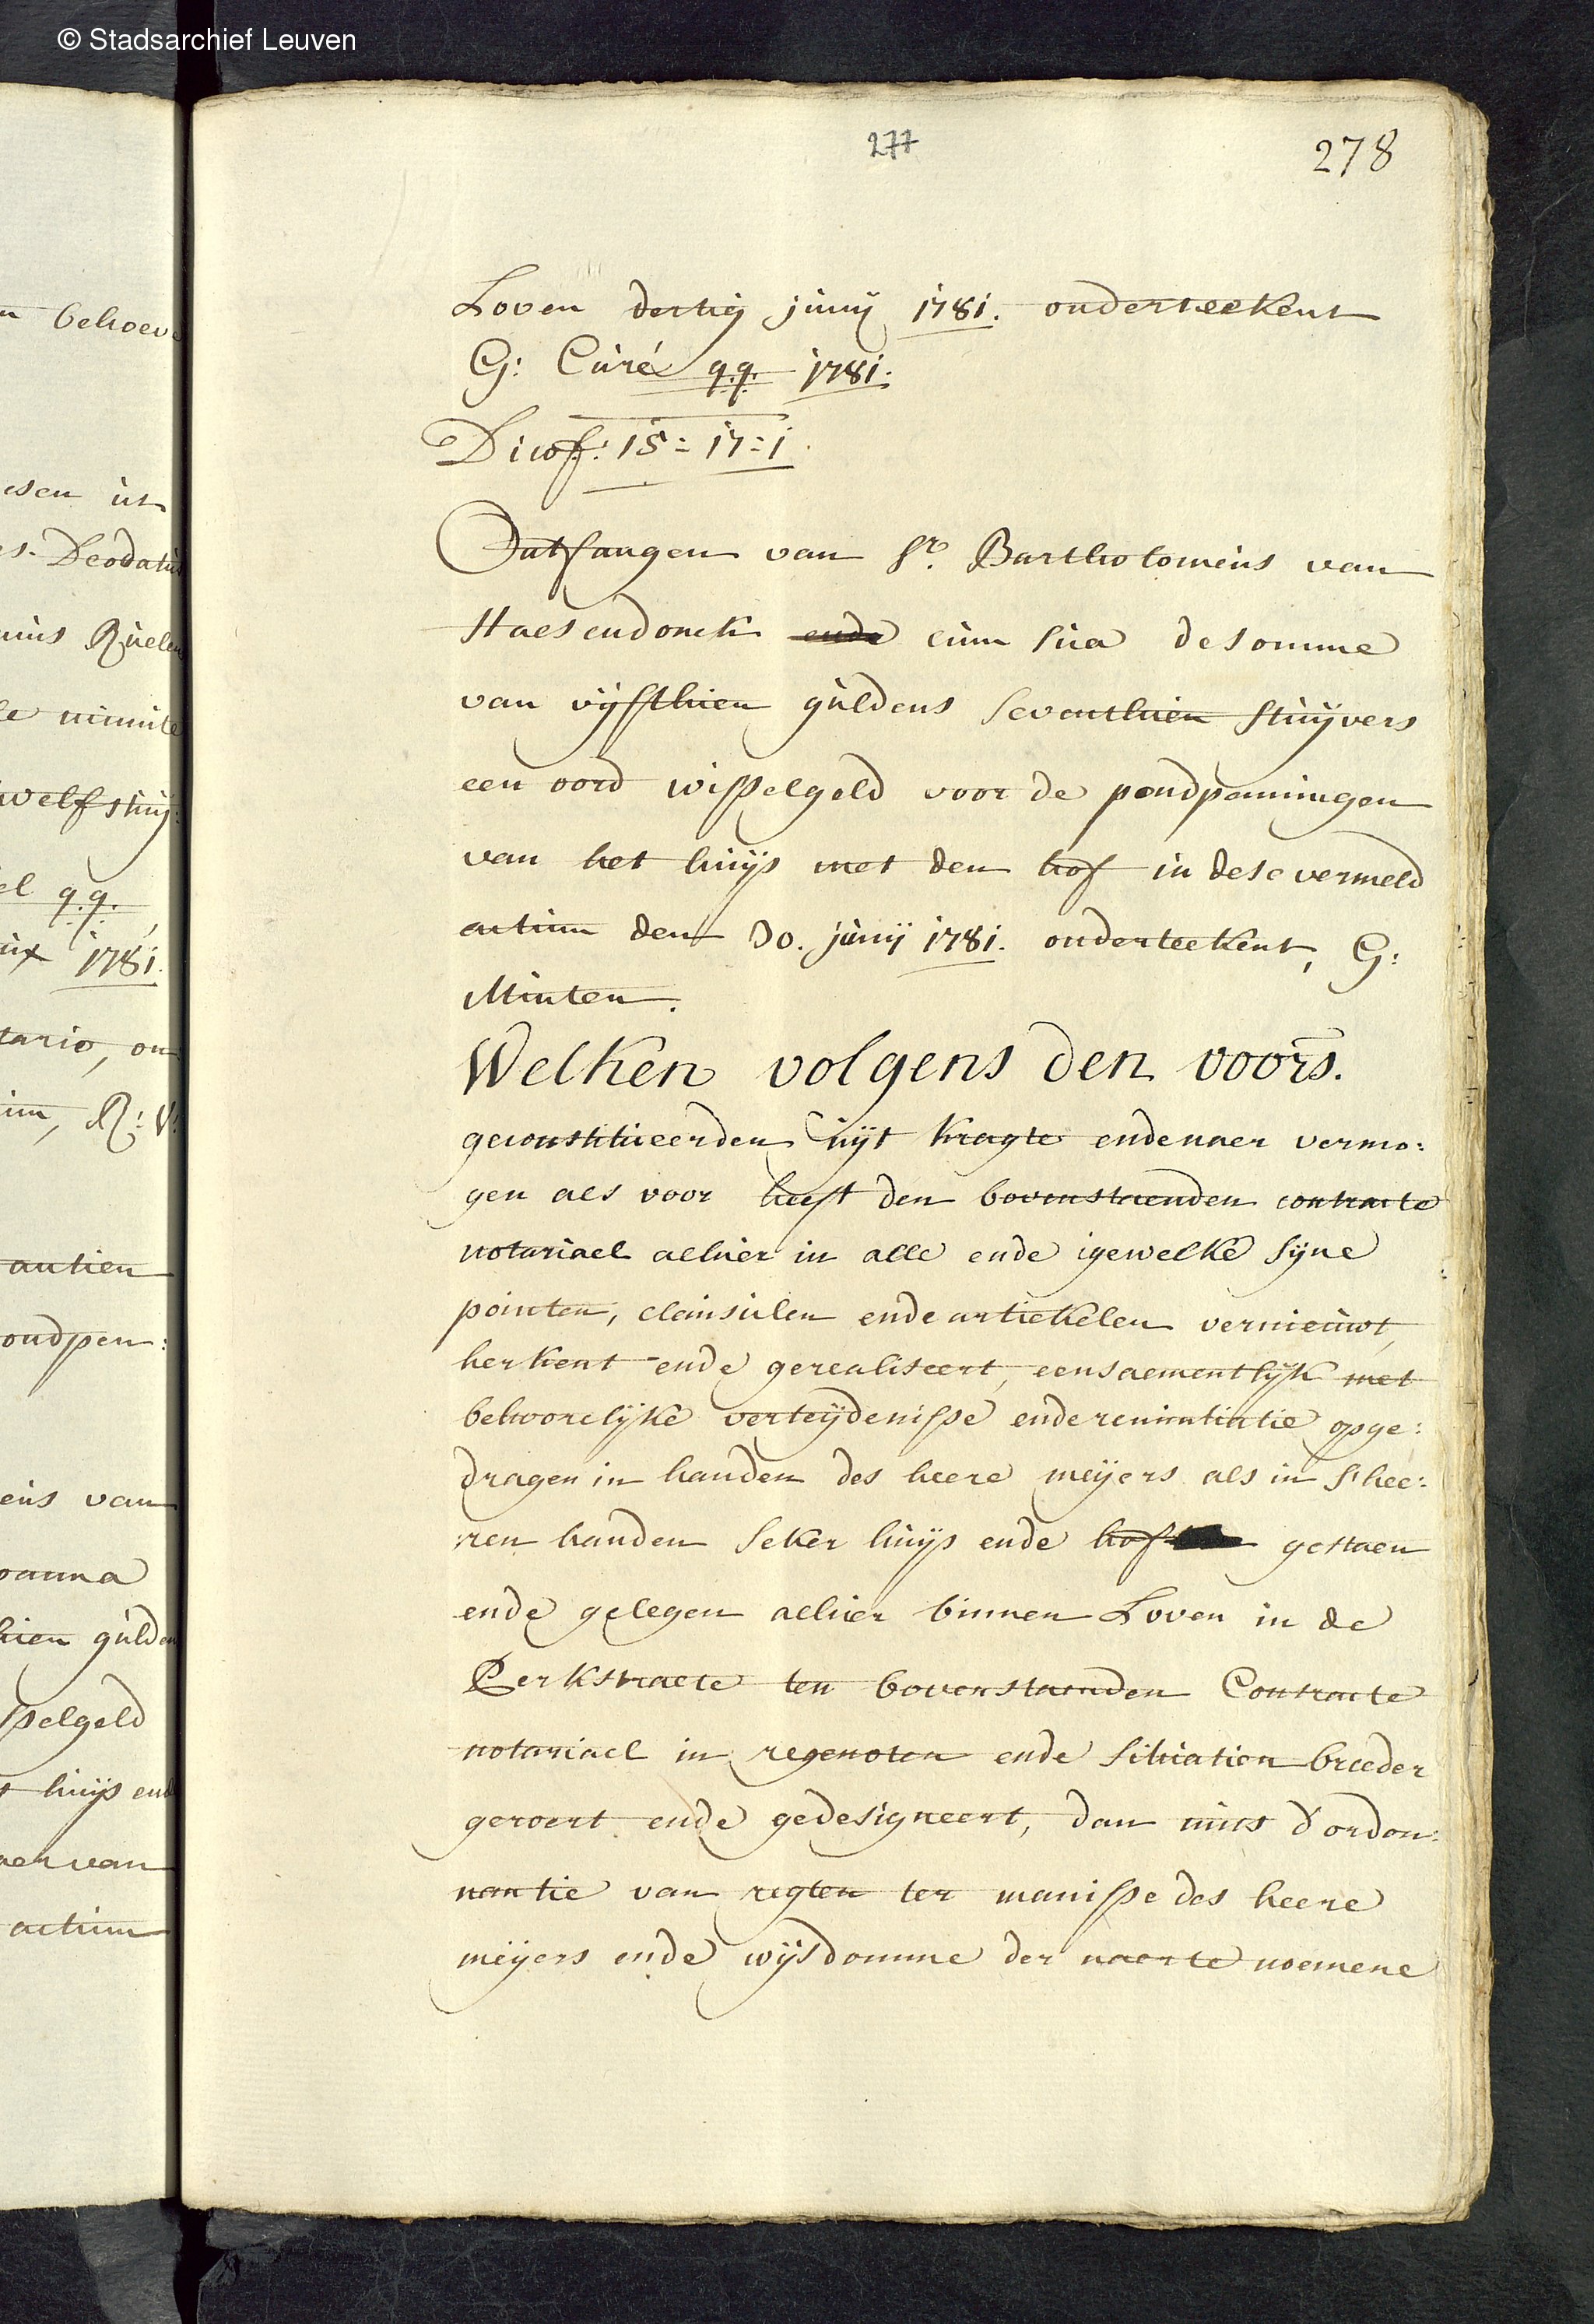 © Stadsarchief Leuven
277
278
Loven dertig junij 1781. onderteekent
G: Curé q.q. 1781.
Dico f. 15=17=1
Ontfangen van Sr. Bartholomeus van
Haesendonck ende cum sua de somme
van vijfthien guldens seventhien stuijvers
een oord wisselgeld voor de pondpenningen
van het huijs met den hof in dese vermeld
actum den 30. junij 1781. onderteekent, G:
Minten.
Welken volgens den voors.
geconstitueerden uijt kragte ende naer vermo:
gen als voor heeft den bovenstaenden contracte
notariael alhier in alle ende igewelke sijne
pointen, clausulen ende artiekelen vernieuwt,
herkent ende gerealiseert, eensaementlijk met
behoorelijke verteijdenisse ende renuntiatie opge:
dragen in handen des heere meijers als in s'hee:
ren handen seker huijs ende hof gestaen
ende gelegen alhier binnen Loven in de
Perkstraete ten bovenstaenden Contracte
notariael in regenoten ende situatien breeder
geroert ende gedesigneert, dan mits d'ordon:
nantie van regten ter manisse des heere
meijers ende wijsdomme der naerte noemene
behoev
esen ut
Deodatu
Ruelen
minute
welf stuij:
el q.q.
1781.
tario, on
autien
ondpen:
eus van
oanna
hien gulden
sselgeld
huijs end
aer van
actum